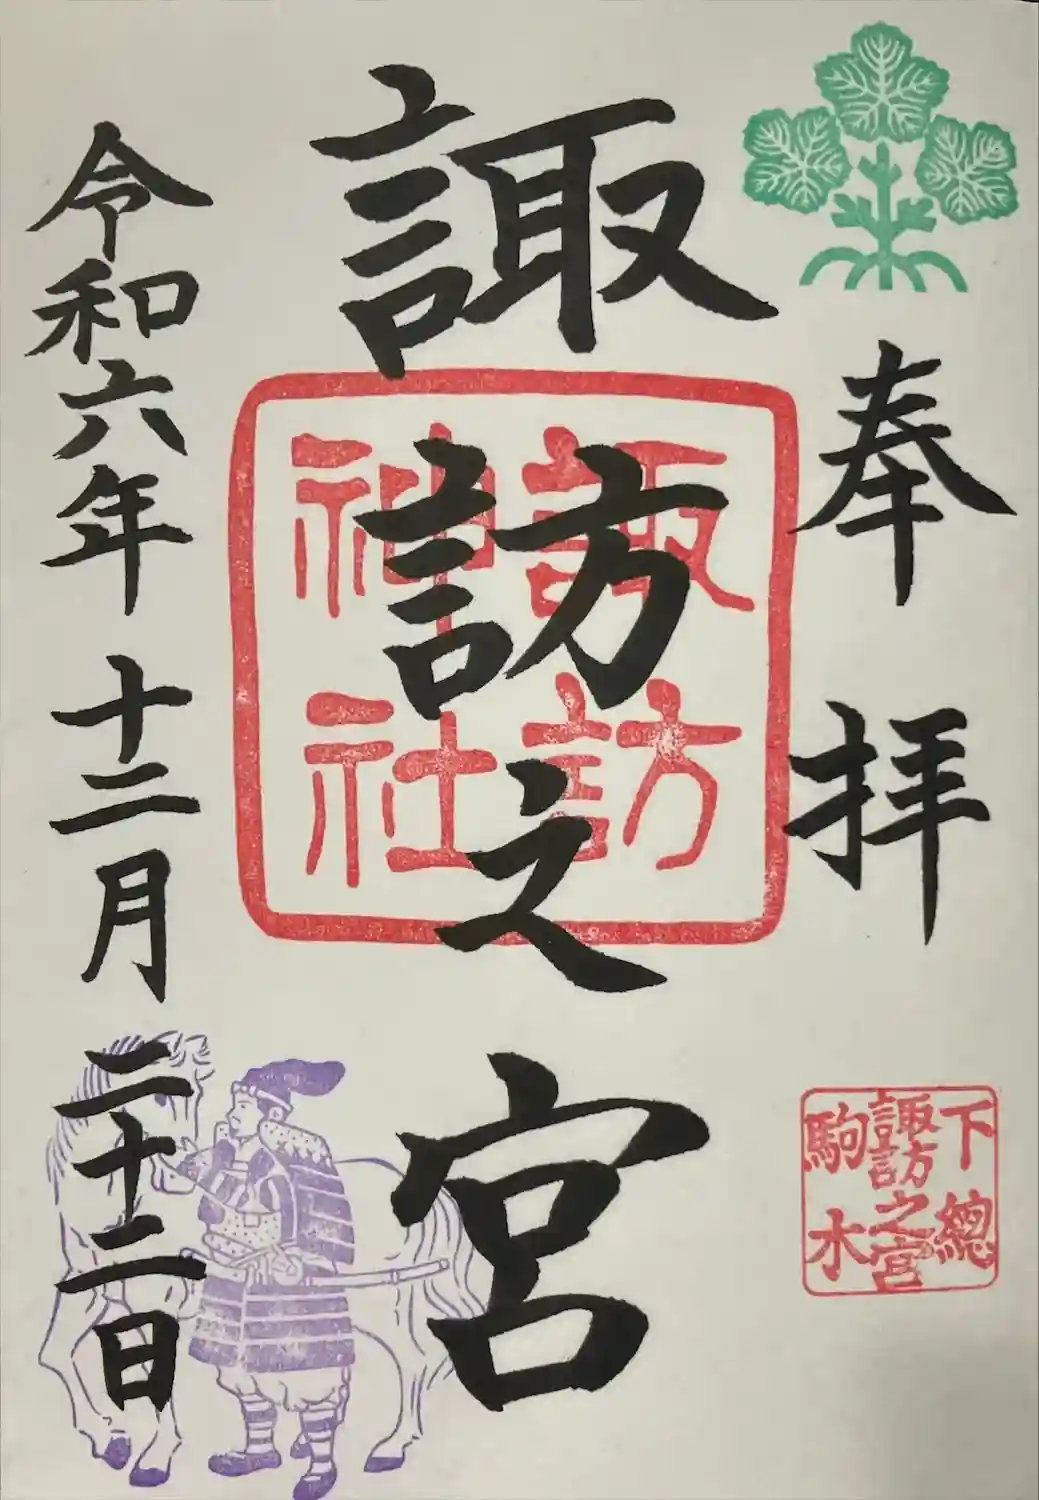 奉拝
下總
諏訪之宮
駒木
諏訪之宮
諏訪
神社
令和六年十二月二十二日